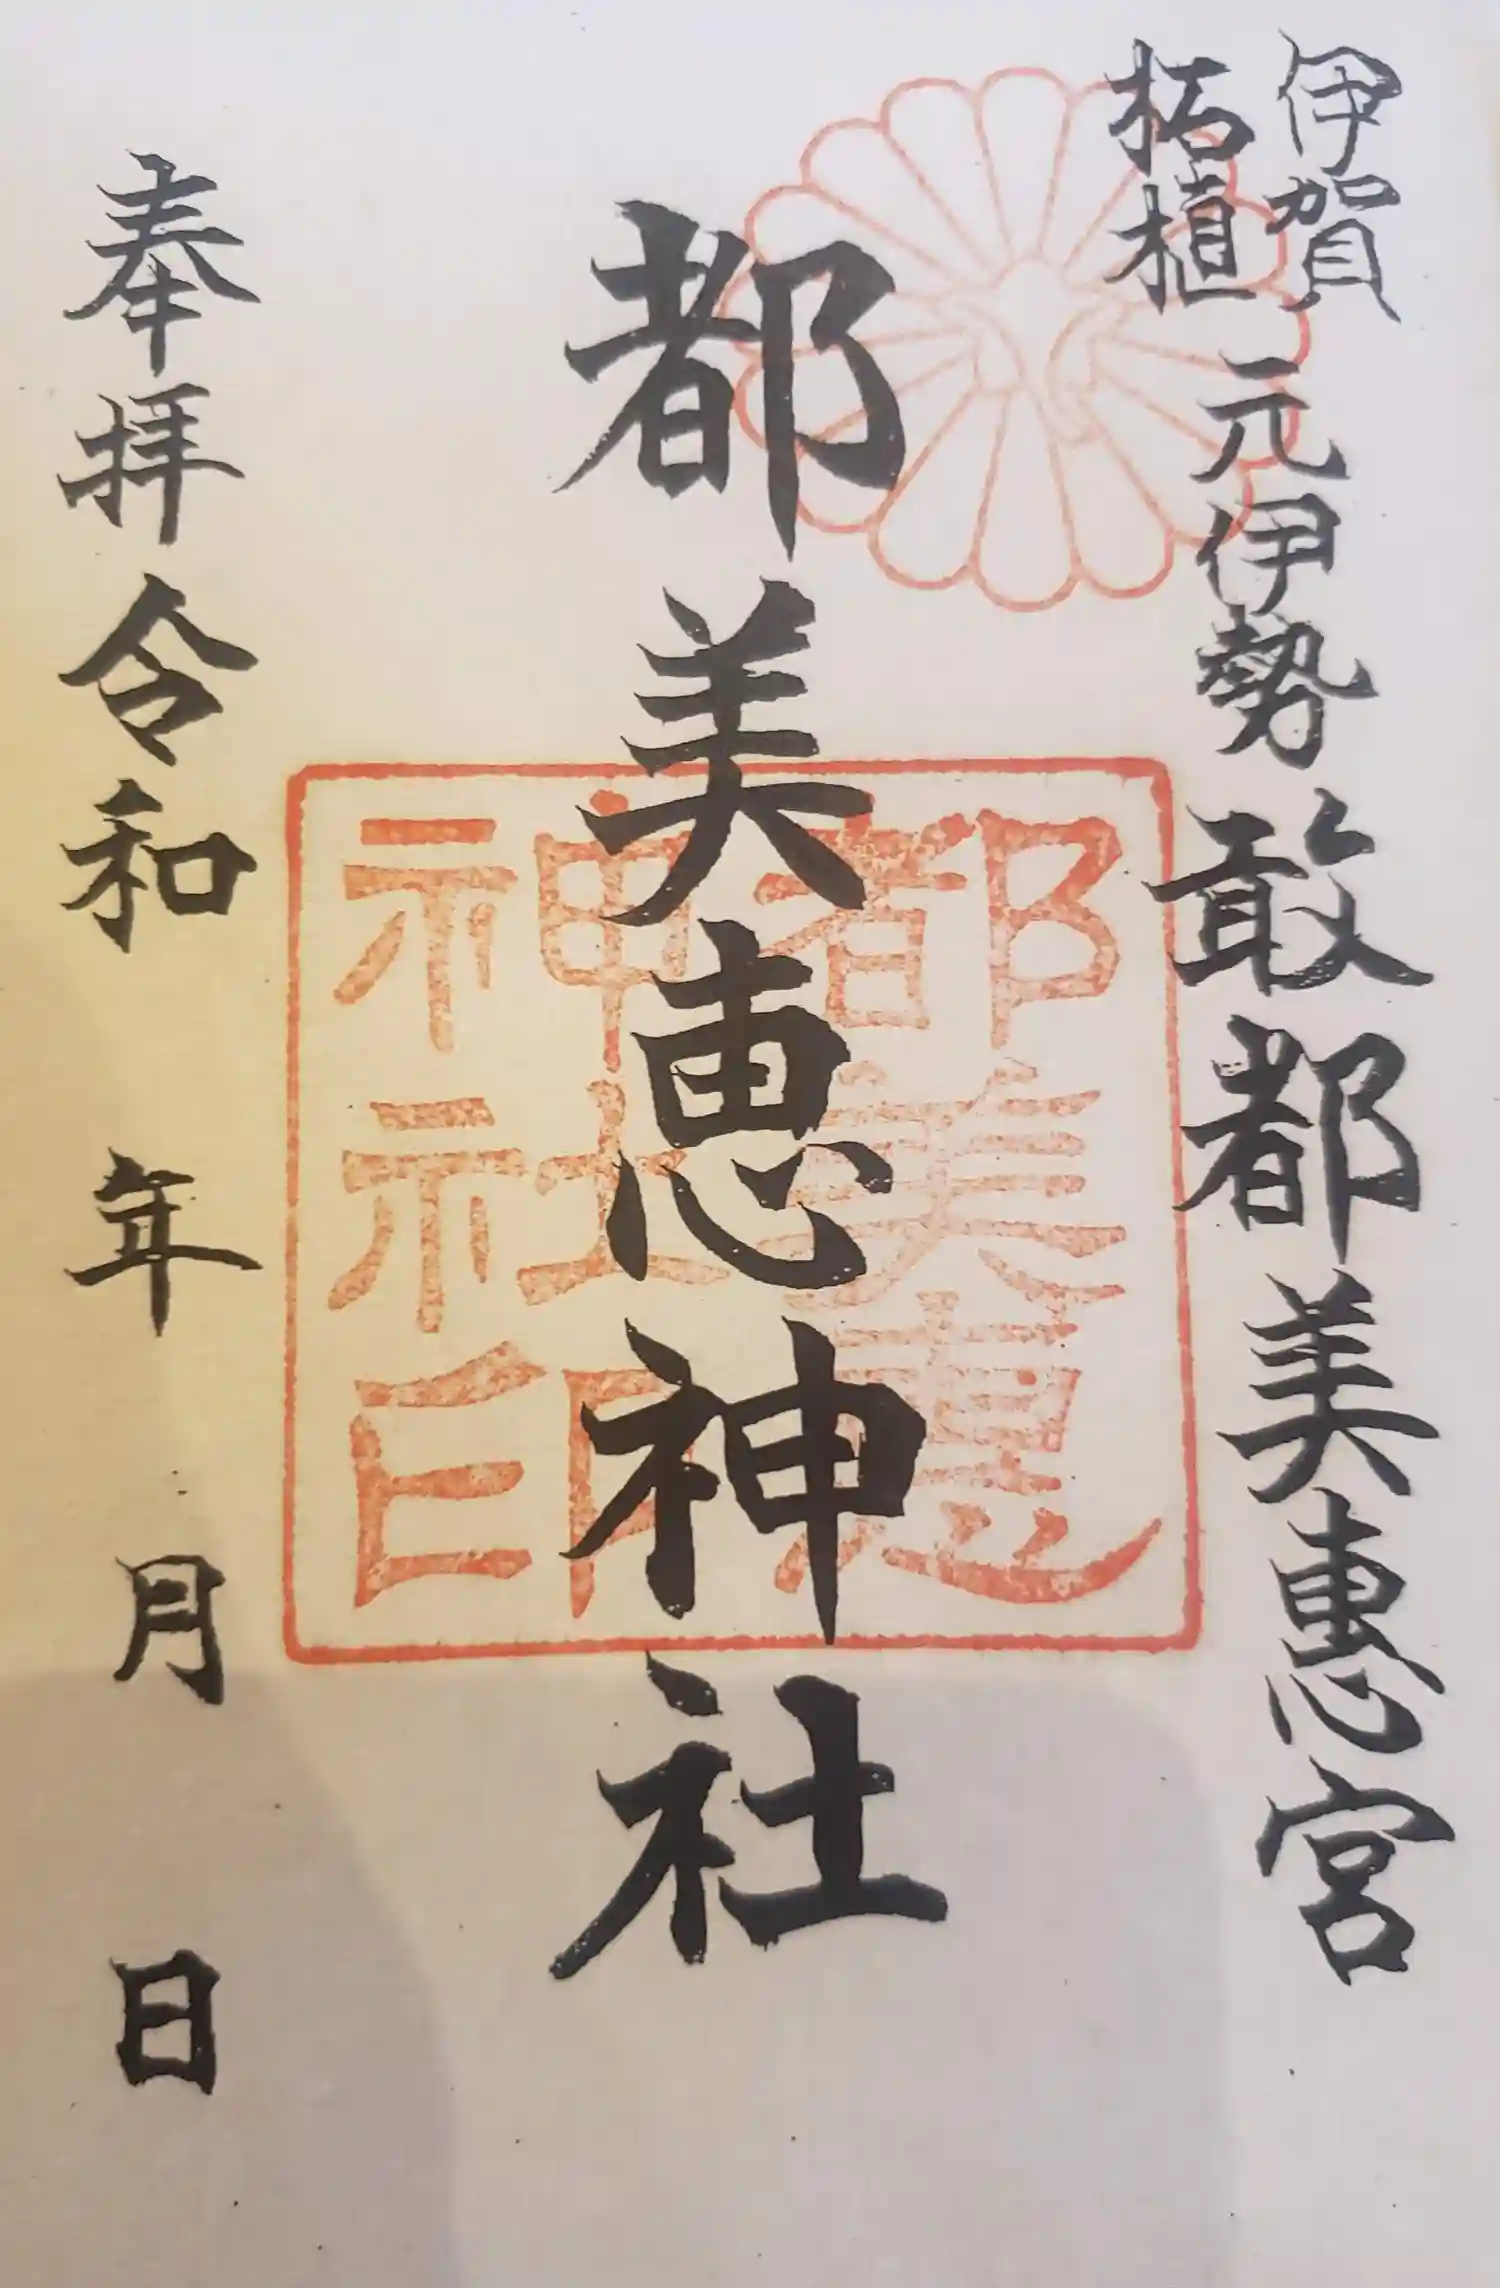 伊賀
柘植
元伊勢 敢都美恵宮
都美恵神社
奉拝 令和 年 月 日
都美恵
神社印